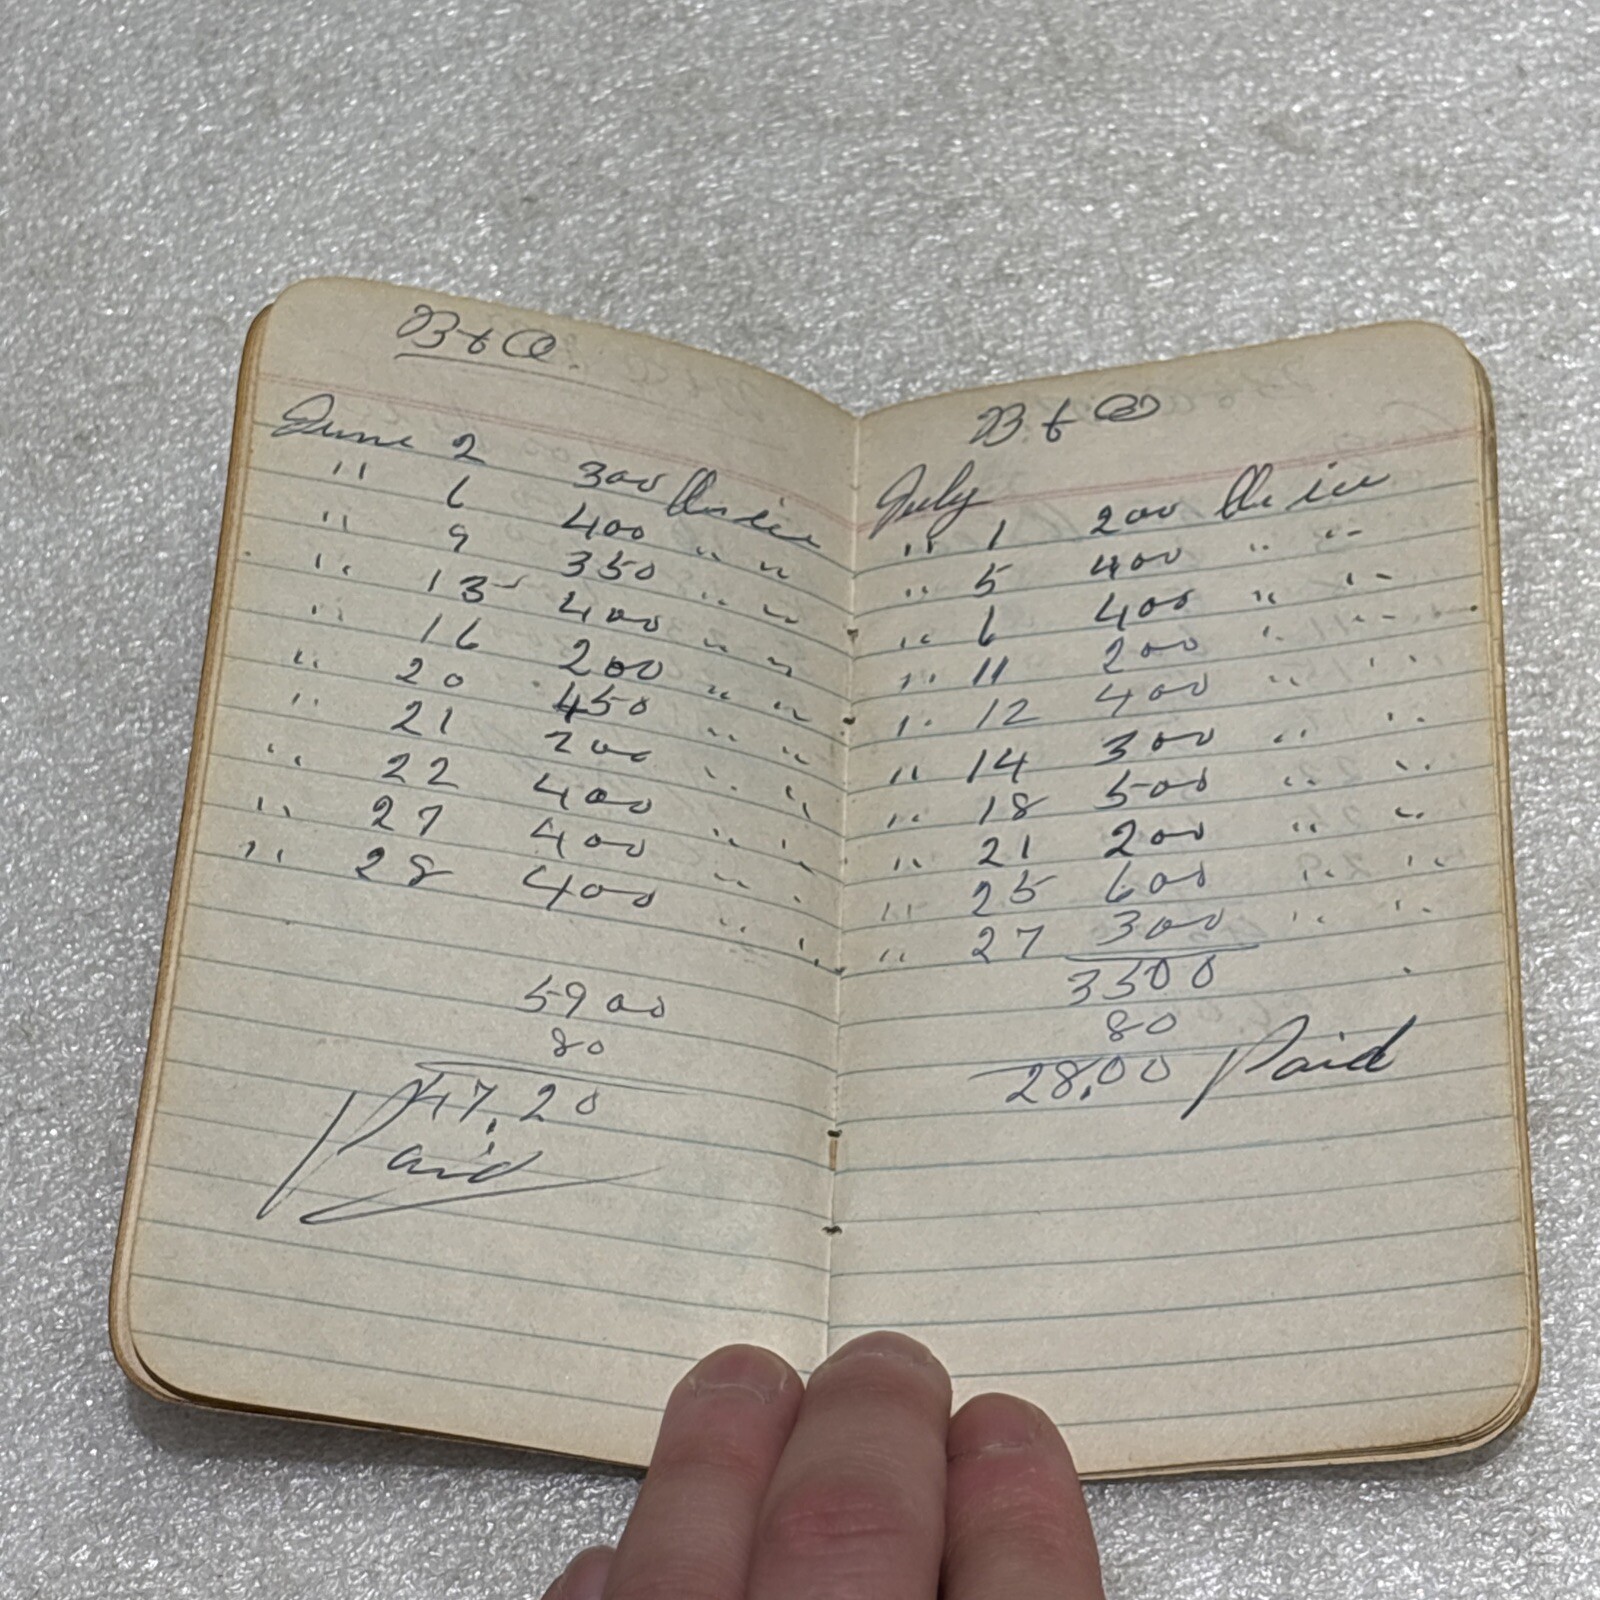 B & O.
June 2 300 lbs ice
" 6 400 " "
" 9 350 " "
" 13 400 " "
" 16 200 " "
" 20 450 " "
" 21 200 " "
" 22 400 " "
" 27 400 " "
" 28 400 " "
5900
80
47.20
Paid
B & O
July
" 1 200 lbs ice
" 5 400 " "
" 6 400 " "
" 11 200 " "
" 12 400 " "
" 14 300 " "
" 18 500 " "
" 21 200 " "
" 25 600 " "
" 27 300 " "
3500
80
28.00 Paid